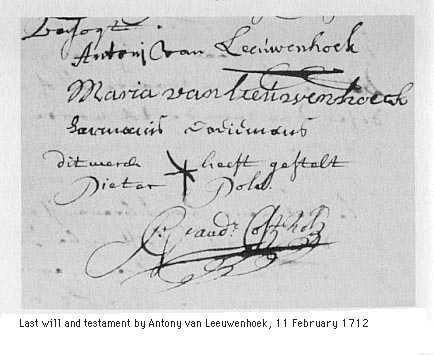 Antonj van Leeuwenhoek
Maria van leeuwenhoeck
harmanus
dit merck heeft gestelt
Pieter Pols
Last will and testament by Antony van Leeuwenhoek, 11 February 1712